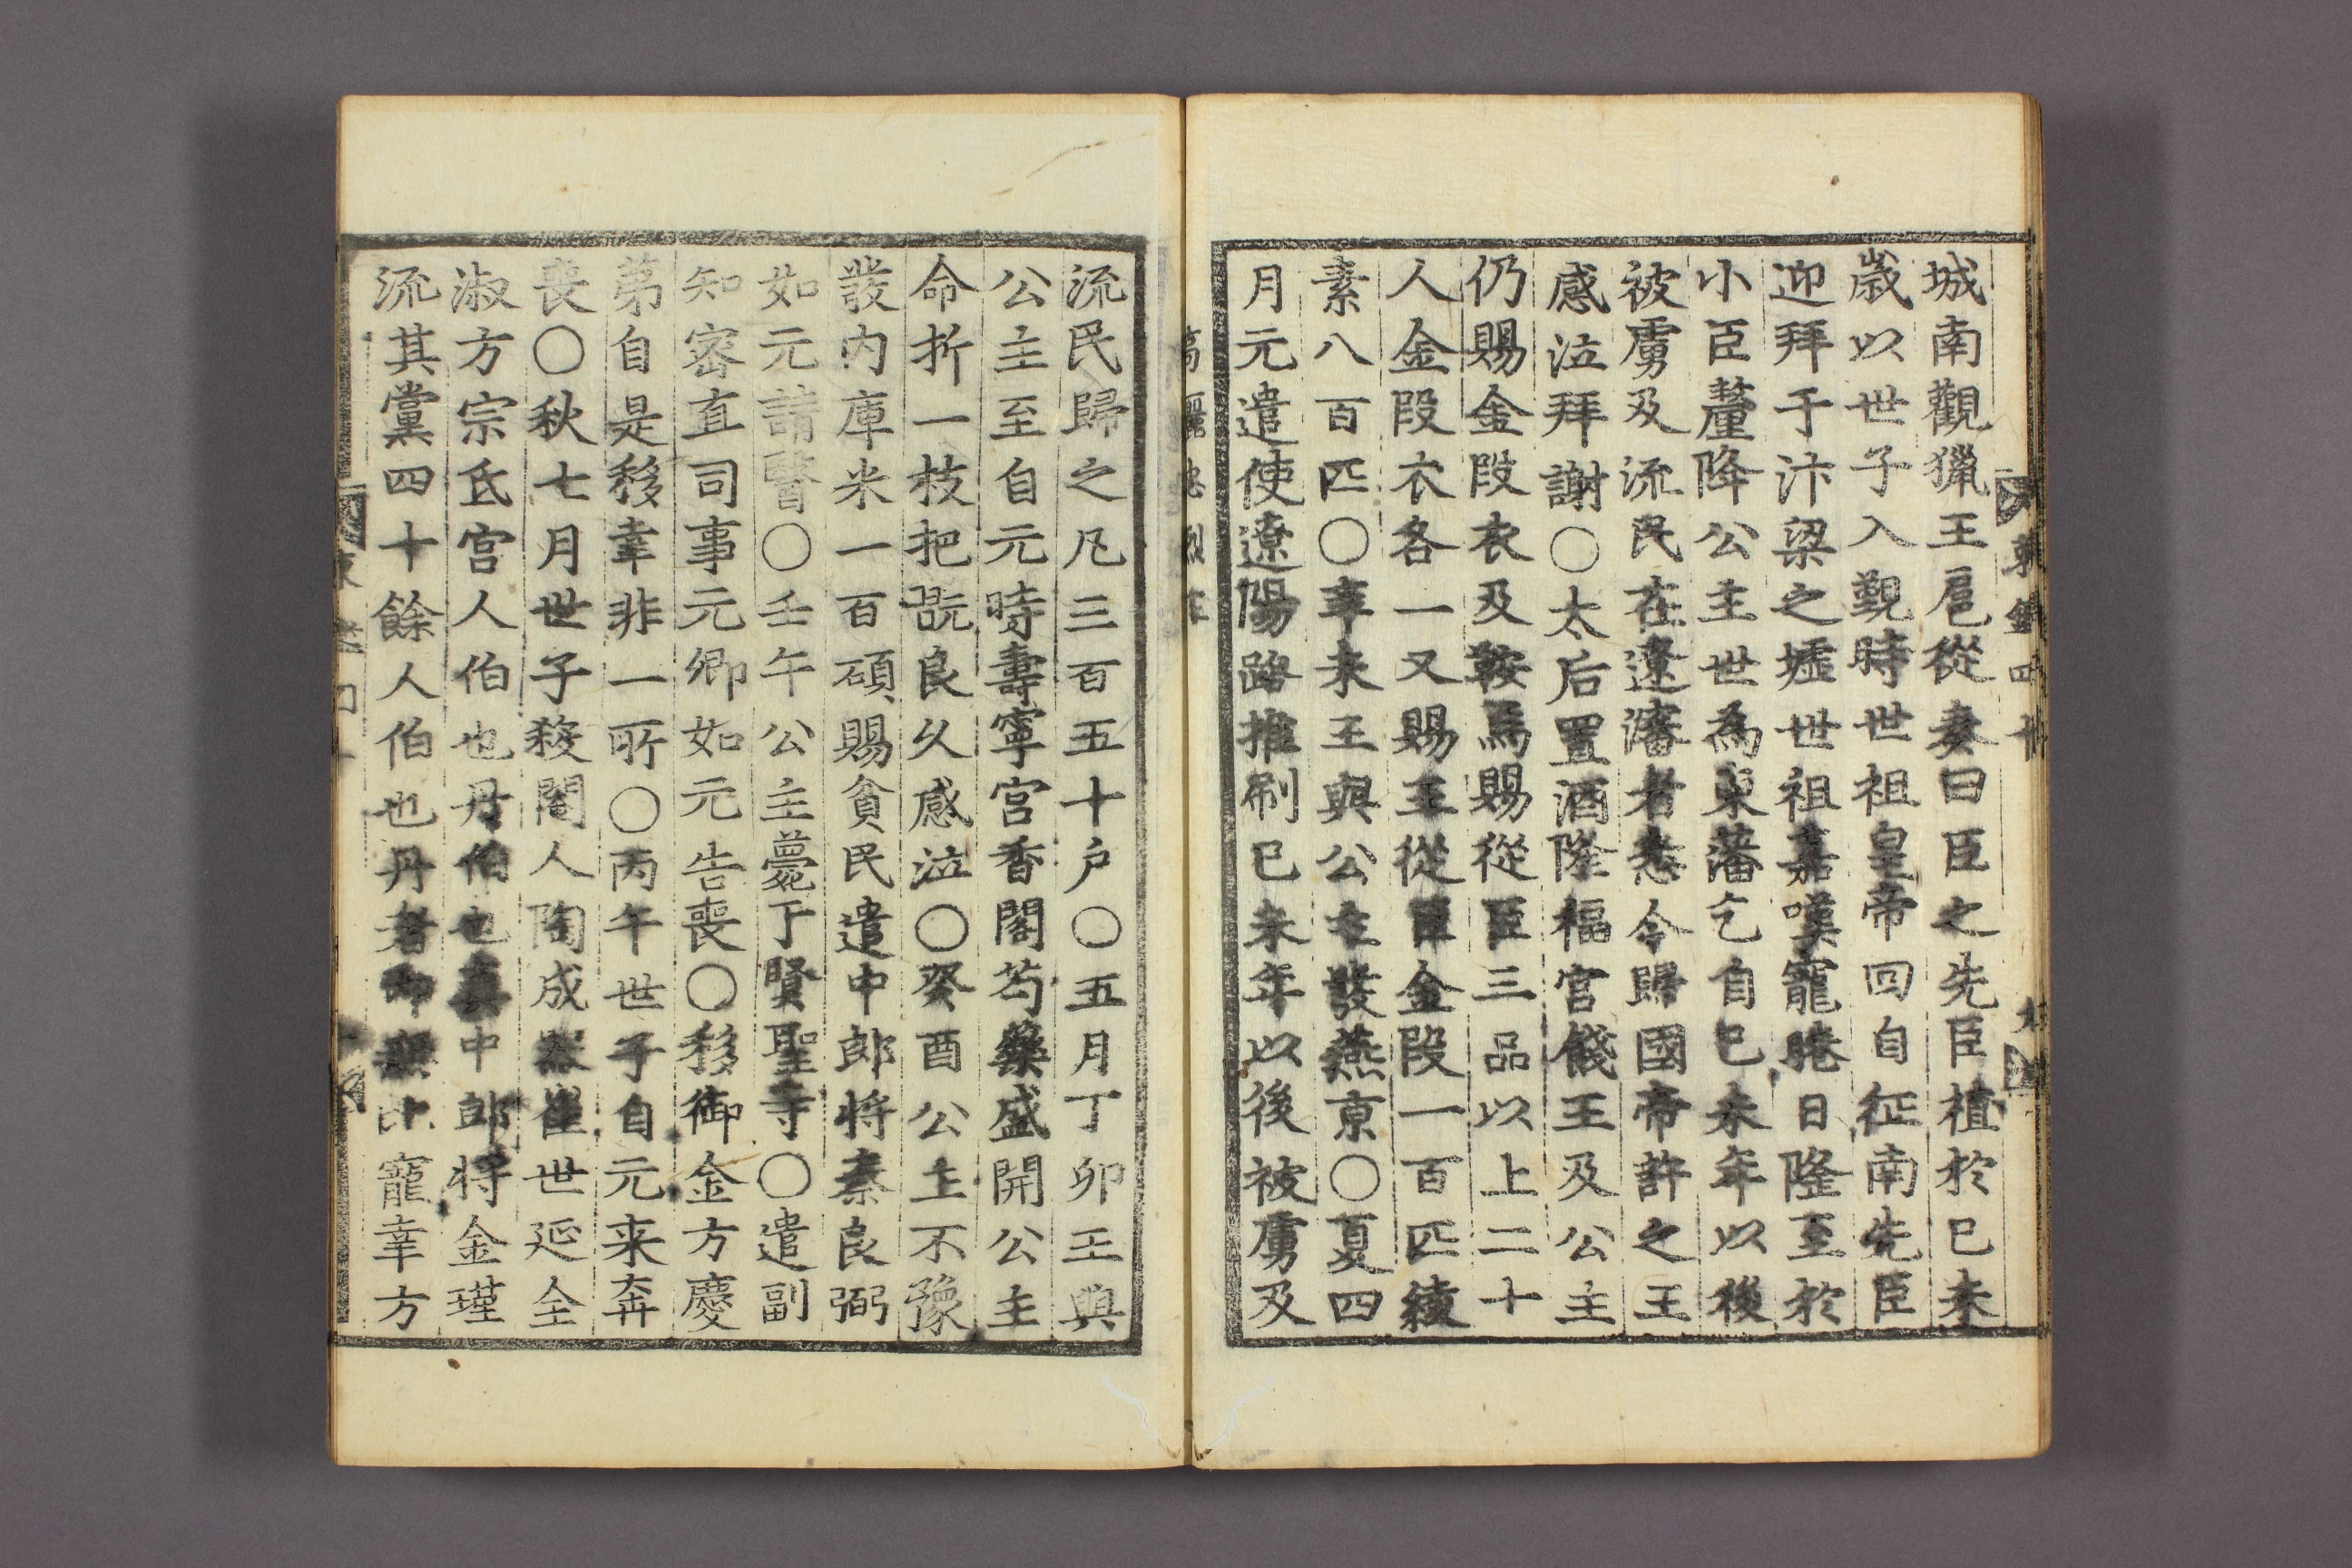 城南觀獵王扈從奏曰臣之先臣植於己未
歲以世子入覲時世祖皇帝回自征南先臣
迎拜于汴梁之墟世祖嘉嘆寵睠日隆至於
小臣釐降公主世為東藩乞自己未年以後
被虜及流民在遼瀋者悉令歸國帝許之王
感泣拜謝〇太后置酒隆福宮餞王及公主
仍賜金段衣及鞍馬賜從臣三品以上二十
人金段衣各一又賜王從臣金段一百匹綾
素八百匹〇辛未王與公主發燕京〇夏四
月元遣使遼陽路推刷己未年以後被虜及
高麗忠烈王
流民歸之凡三百五十戶〇五月丁卯王與
公主至自元時壽寧宮香閣芍藥盛開公主
命折一枝把翫良久感泣〇癸酉公主不豫
發內庫米一百碩賜貧民遣中郎將秦良弼
如元請醫〇壬午公主薨于賢聖寺〇遣副
知密直司事元卿如元告喪〇移御金方慶
第自是移幸非一所〇丙午世子自元来奔
喪〇秋七月世子殺閹人陶成器崔世延全
淑方宗氐宮人伯也丹伯也真中郎將金瑾
流其黨四十餘人伯也丹者即無比寵幸方